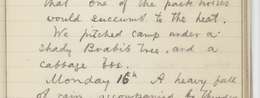 that one of the pack horses
would succumb to the heat.
We pitched camp under a
shady Boabib tree and a
cabbage tree.
Monday 16th A heavy fall
of rain accompanied by thunder